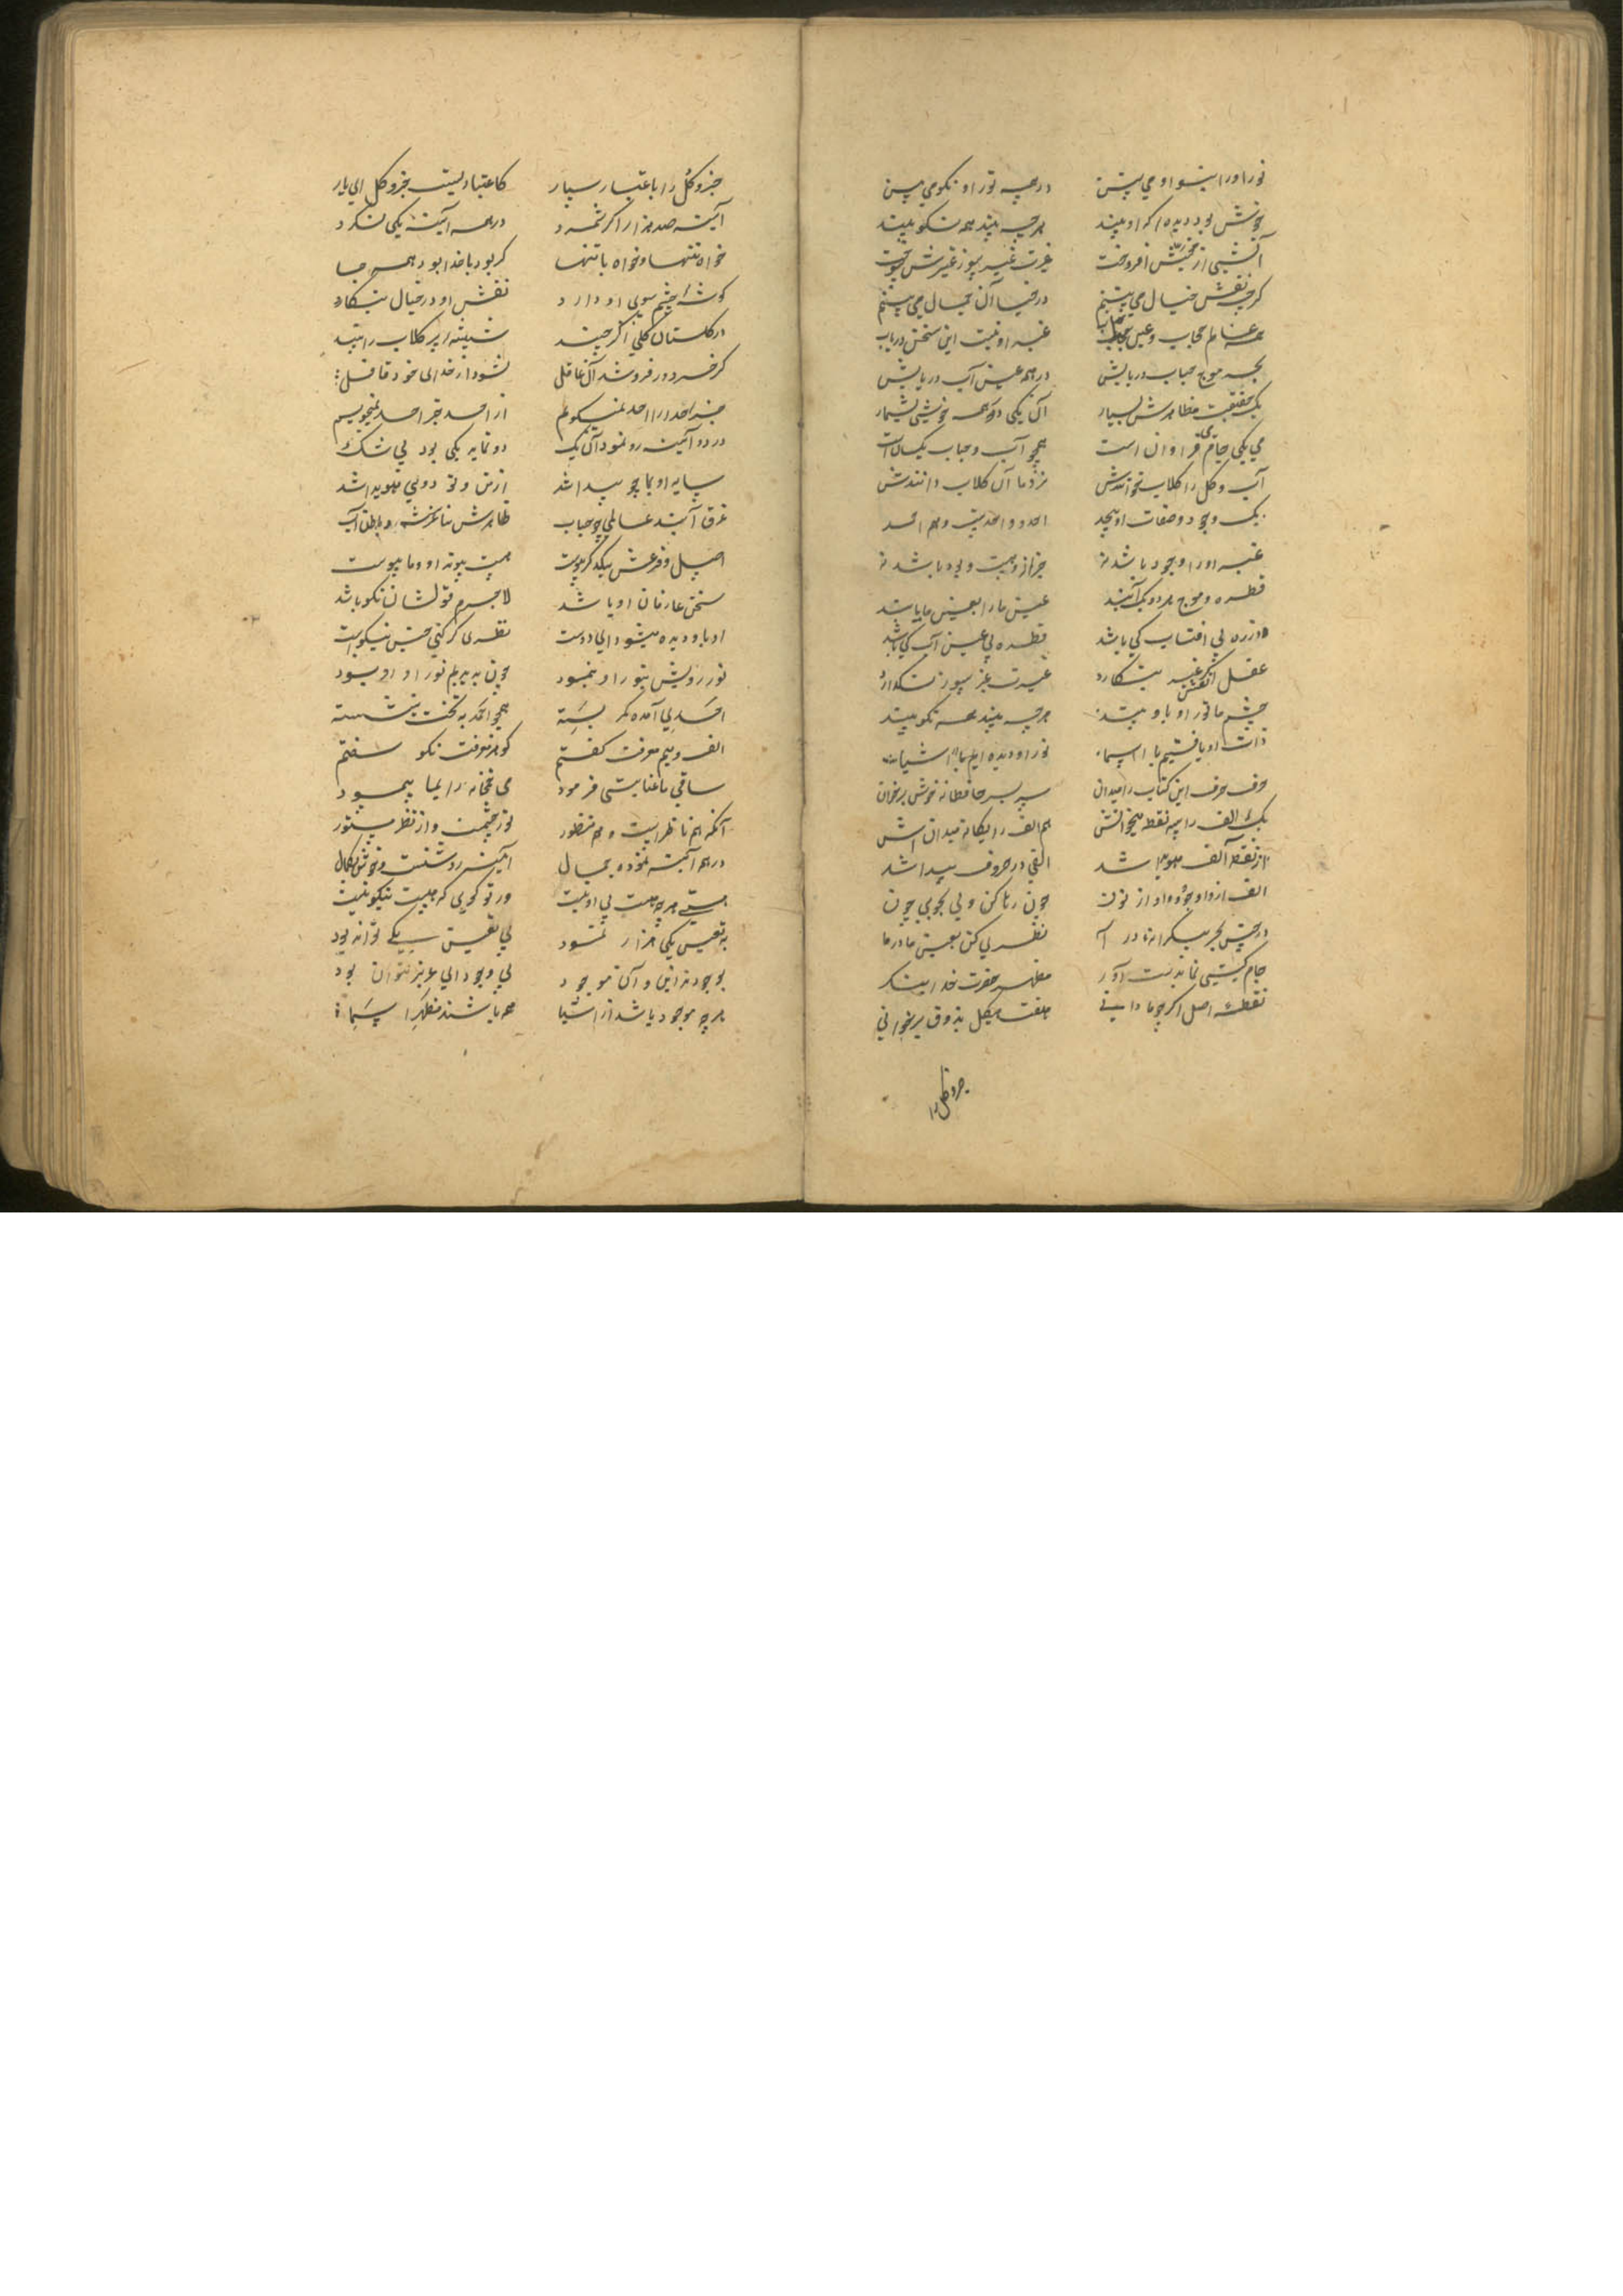 نور او را بنور او می بین در همه نور او نکو می بین
خوش بود دیده ای که او بیند هرچه بیند همه نکو بیند
آتشی از محبتش افروخت غیرت غیر سوز غیرش سوخت
گرچه نقش خیال می بینم در خیال آن جمال می بینم
همه عالم حجاب و عین حجاب غیر او نیست این سخن دریاب
بحر و موج و حباب دریابش در همه عین آب دریابش
یک حقیقت مظاهرش بسیار آن یکی در همه خوشی بشمار
می یکی جام می فراوان است همچو آب و حباب یکسان است
آب و گل را گلاب خوانندش نزد ما آن گلاب دانندش
یک وجود و صفات او بیحد احد و واحدیت و هم احمد
غیر او را وجود باشد نه جز از او هست و بود باشد نه
قطره و موج هر دو یک آبند عین ما را بعین ما یابند
ذره بی آفتاب کی باشد قطره بی عین آب کی باشد
عقل اگر نقش غیر بنگارد غیرت غیر سوز نگذارد
چشم ما نور او باو بیند هرچه بیند همه نکو بیند
ذات او یافتیم با اسما نور او دیده ایم با اشیا
حرف حرف این کتاب را میدان سر بسر حافظانه خوش برخوان
یک الف را سه نقطه میخوانش هم الف را یگانه میدانش
از نقط آن الف هویدا شد الفی در حروف پیدا شد
الف از واو جو و واو از نون چون رها کن ولی بجوی بی چون
در چنین بحر بیکرانه درآ نظری کن بعین ما در ما
جام گیتی نما بدست آور مظهر حضرت خدا بنگر
نقطه اصل اگر چو ما دانی هفت هیکل بذوق برخوانی
جزو و کل را
جزو و کل را باعتبار سپار کاعتباریست جزو و کل ای یار
آینه صد هزار اگر شمرد در همه آینه یکی نگرد
خواه تنها و خواه با تنها گر بود با خدا بود همه جا
گوشه چشم سوی او دارد نقش او در خیال بنگارد
در گلستان گلی اگر چیند شیشه پر گلاب را بیند
گر خرد ور فروشد آن عاقل نشود از خدای خود غافل
جز احد را احد نمیگویم از احد جز احد نمیجویم
در دو آئینه رو نمود آن یک دو نماید یکی بود بی شک
سایه او بما چو پیدا شد از من و تو دوئی هویدا شد
غرق آبند عالمی چو حباب ظاهرش ساغرش و باطن آب
اصل و فرعش بیکدگر پیوست هست پیوند او و ما پیوست
سخن عارفان او باشد لاجرم قولشان نکو باشد
او باو دیده میشود ای دوست نظری گر کنی چنین نیکوست
نور رویش بنور او بنمود چون بدیدیم نور او او بود
احدی آمده کمر بسته همچو احمد به تخت بنشسته
الف و میم معرفت گفتم گوهر معرفت نکو سفتم
ساقی ما عنایتی فرمود می خمخانه را بما پیمود
آنکه هم ناظر است و هم منظور نور چشمست و از نظر مستور
در همه آینه نموده جمال آینه روشنست و خوش بکمال
هستی هرچه هست بی او نیست ور تو گوئی که هست نیکو نیست
به تعین یکی هزار نمود بی تعین یکی تواند بود
بوجودند این و آن موجود بی وجود ای عزیز نتوان بود
هرچه موجود باشد از اشیا همه باشند مظهر اسما